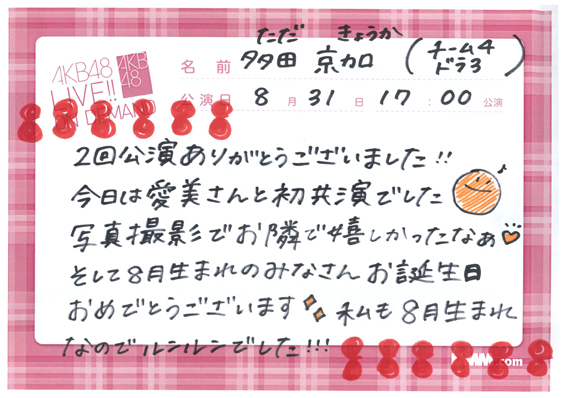 ただ きょうか
名前 多田 京加 (チーム4 ドラ3)
AKB48 LIVE!! ON DEMAND
AKB48
公演日 8月31日 17:00公演
2回公演ありがとうございました!!
今日は愛美さんと初共演でした
写真撮影でお隣で嬉しかったなぁ
そして8月生まれのみなさんお誕生日
おめでとうございます 私も8月生まれ
なのでルンルンでした!!!
.com